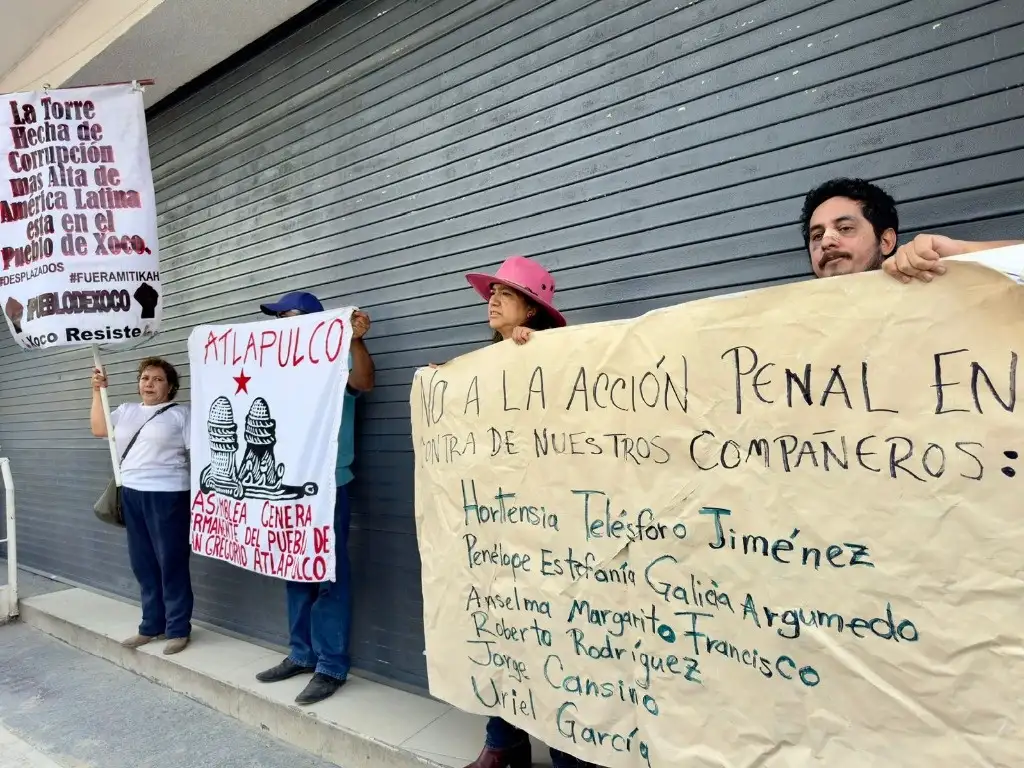 La Torre
Hecha de
Corrupción
mas Alta de
América Latina
esta en el
Pueblo de Xoco.
#DESPLAZADOS #FUERAMITIKAH
#PUEBLODEXOCO
Xoco Resiste
ATLAPULCO
ASAMBLEA GENERA
ERMANENTE DEL PUEBLO DE
AN GREGORIO ATLAPULCO
NO A LA ACCIÓN PENAL EN
CONTRA DE NUESTROS COMPAÑEROS:
Hortensia Telésforo Jiménez
Penélope Estefanía Galicia Argumedo
Anselma Margarito Francisco
Roberto Rodríguez
Jorge Cansino
Uriel García